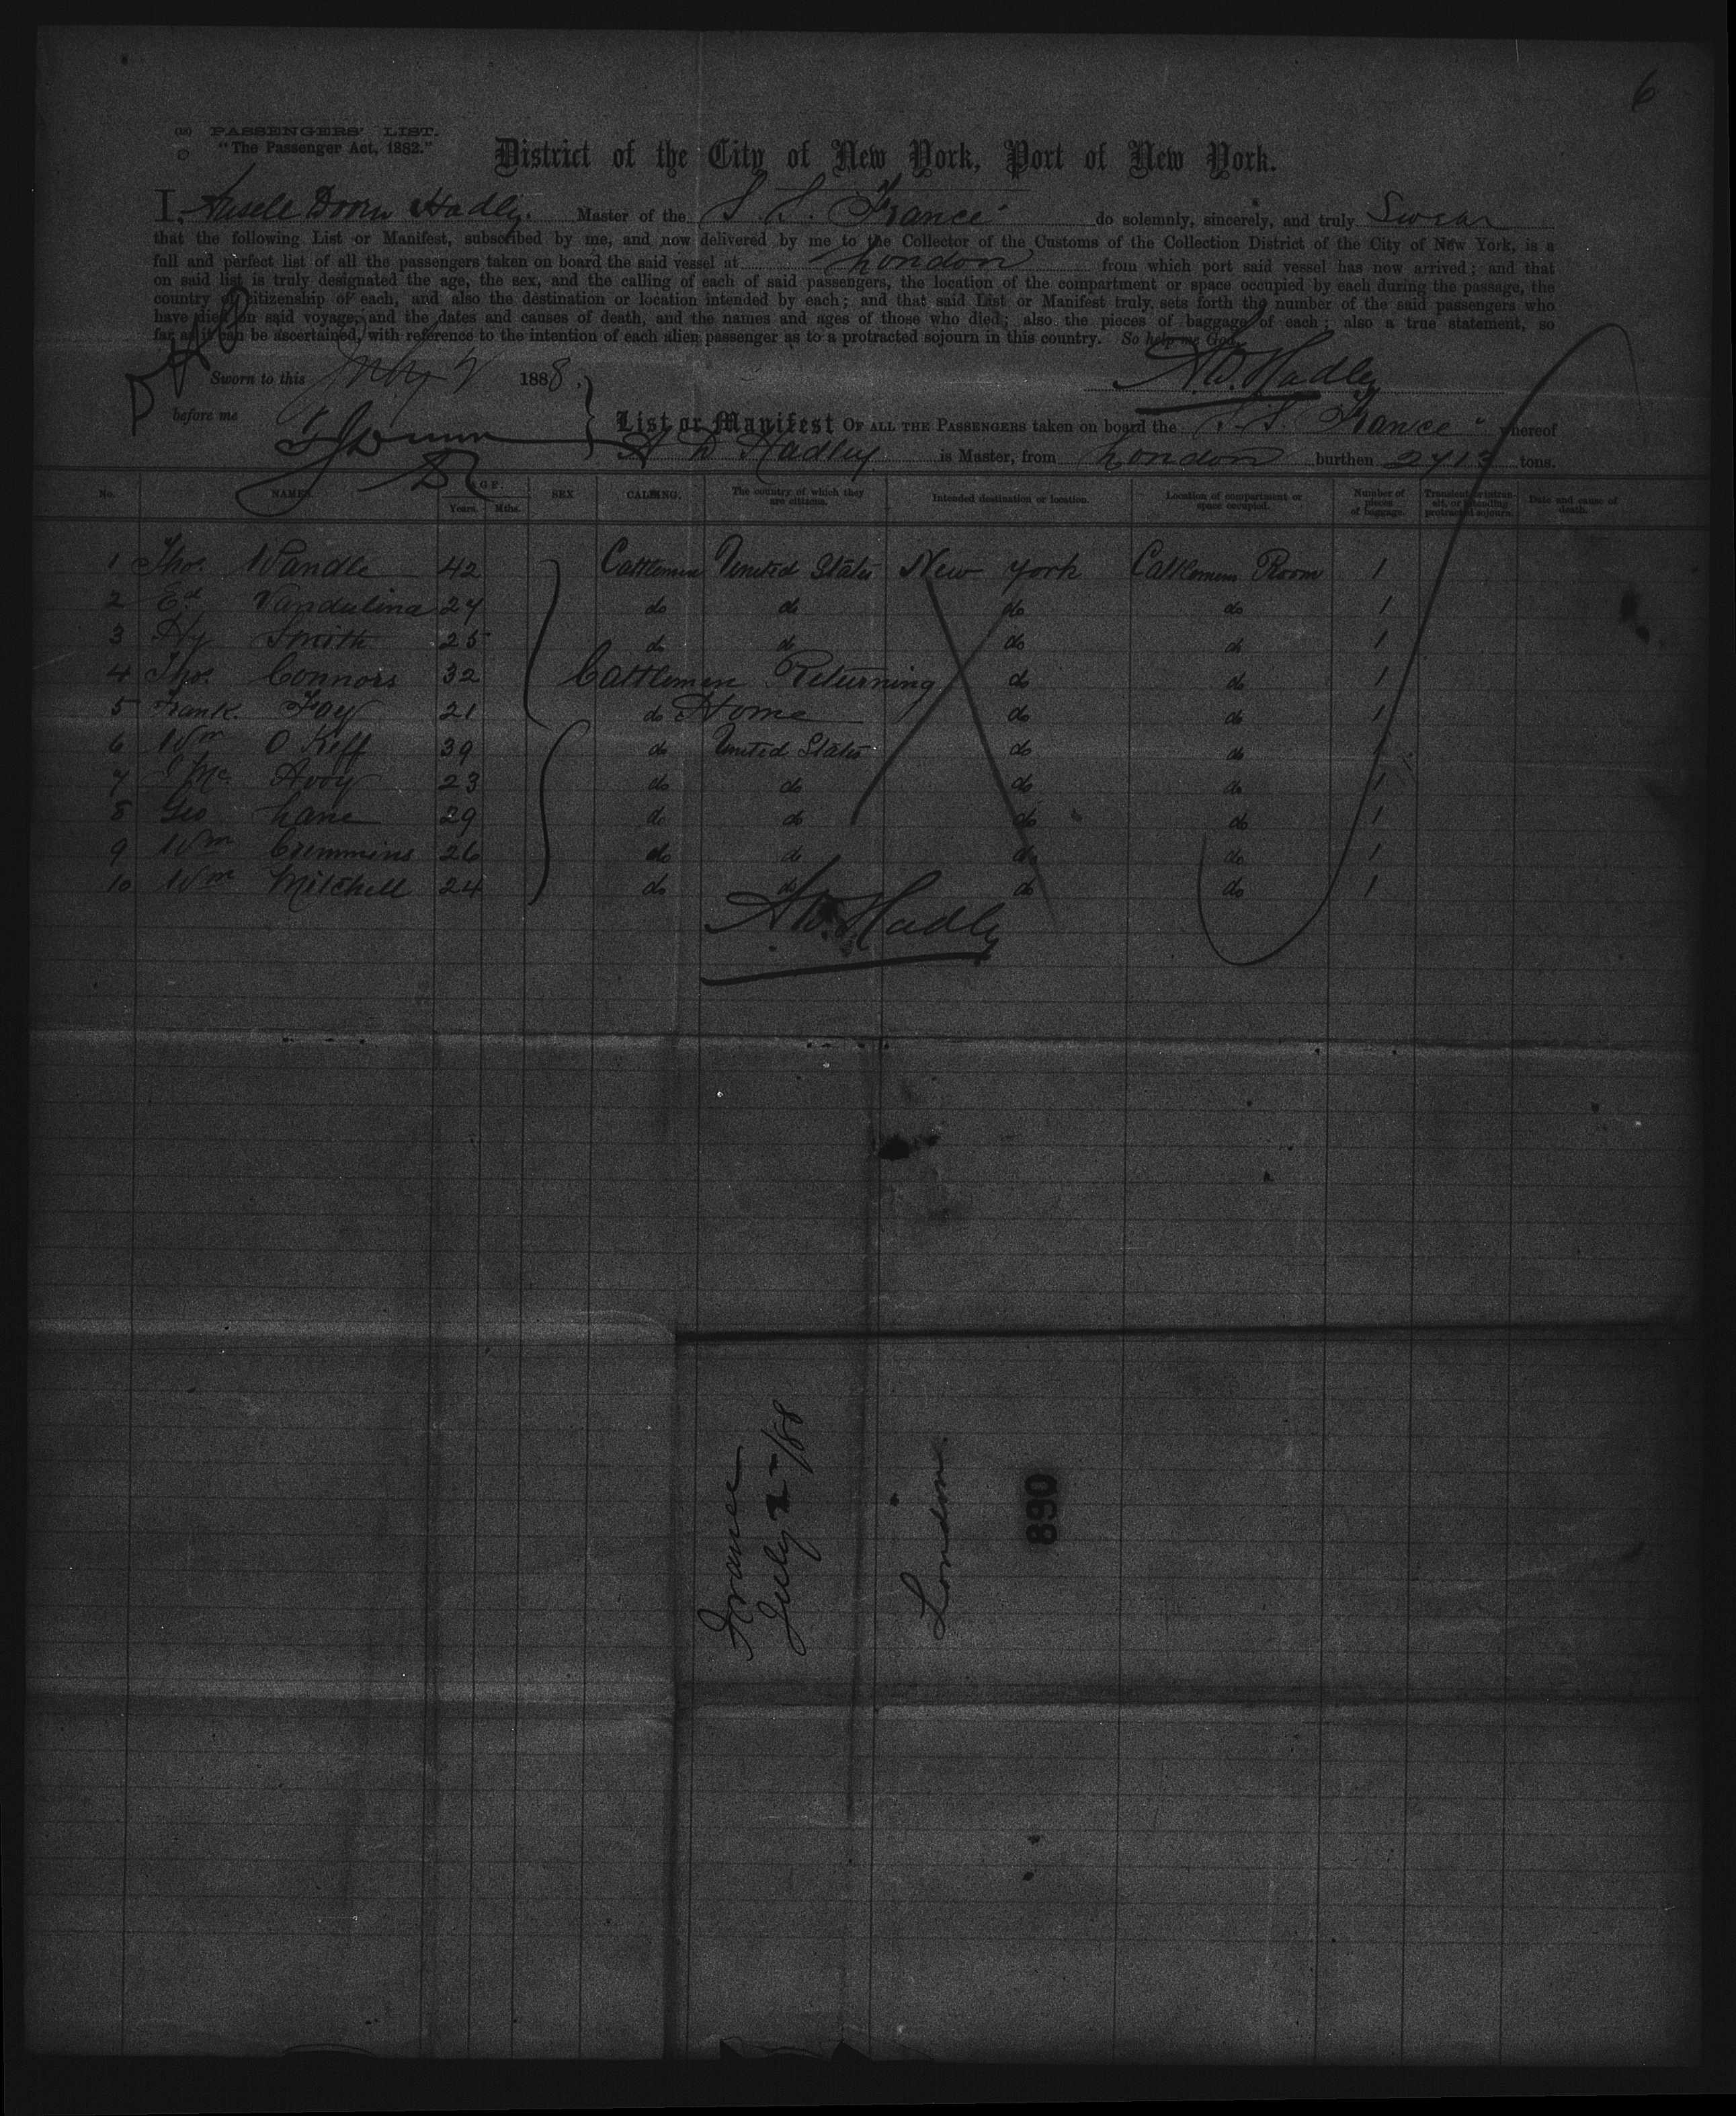 6
(18) PASSENGERS' LIST.
"The Passenger Act, 1882."
District of the City of New York, Port of New York.
I, Hadley. Master of the S. S. "France" do solemnly, sincerely, and truly Swear
that the following List or Manifest, subscribed by me, and now delivered by me to the Collector of the Customs of the Collection District of the City of New York, is a
full and perfect list of all the passengers taken on board the said vessel at London from which port said vessel has now arrived; and that
on said list is truly designated the age, the sex, and the calling of each of said passengers, the location of the compartment or space occupied by each during the passage, the
country of citizenship of each, and also the destination or location intended by each; and that said List or Manifest truly sets forth the number of the said passengers who
have died on said voyage, and the dates and causes of death, and the names and ages of those who died; also the pieces of baggage of each; also a true statement, so
far as it can be ascertained, with reference to the intention of each alien passenger as to a protracted sojourn in this country. So help me God.
A. D. Hadley
Sworn to this July 2 1888.
before me
List or Manifest OF ALL THE PASSENGERS taken on board the S. S. "France" whereof
A D Hadley is Master, from London burthen tons.
No. NAMES. AGE. Years. Mths. SEX CALLING. The country of which they are citizens. Intended destination or location. Location of compartment or space occupied. Number of pieces of baggage. Transient or in transit, or intending protracted sojourn. Date and cause of death.
1 Thos. Wandle 42 Cattlemen United States New York Cattlemens Room 1
2 Ed Vandulina 24 do do do do 1
3 Hy Smith 25 do do do do 1
4 Thos. Connors 32 Cattlemen Returning do do 1
5 Frank. Fay 21 do Home do do 1
6 Wm O Keff 39 do United States do do 1
7 Mc. Avoy 23 do do do do 1
8 Geo Lane 29 do do do do 1
9 Wm Cremmins 26 do do do do 1
10 Wm Mitchell 24 do do do do 1
A. D. Hadley
France
July 2/88
London.
890